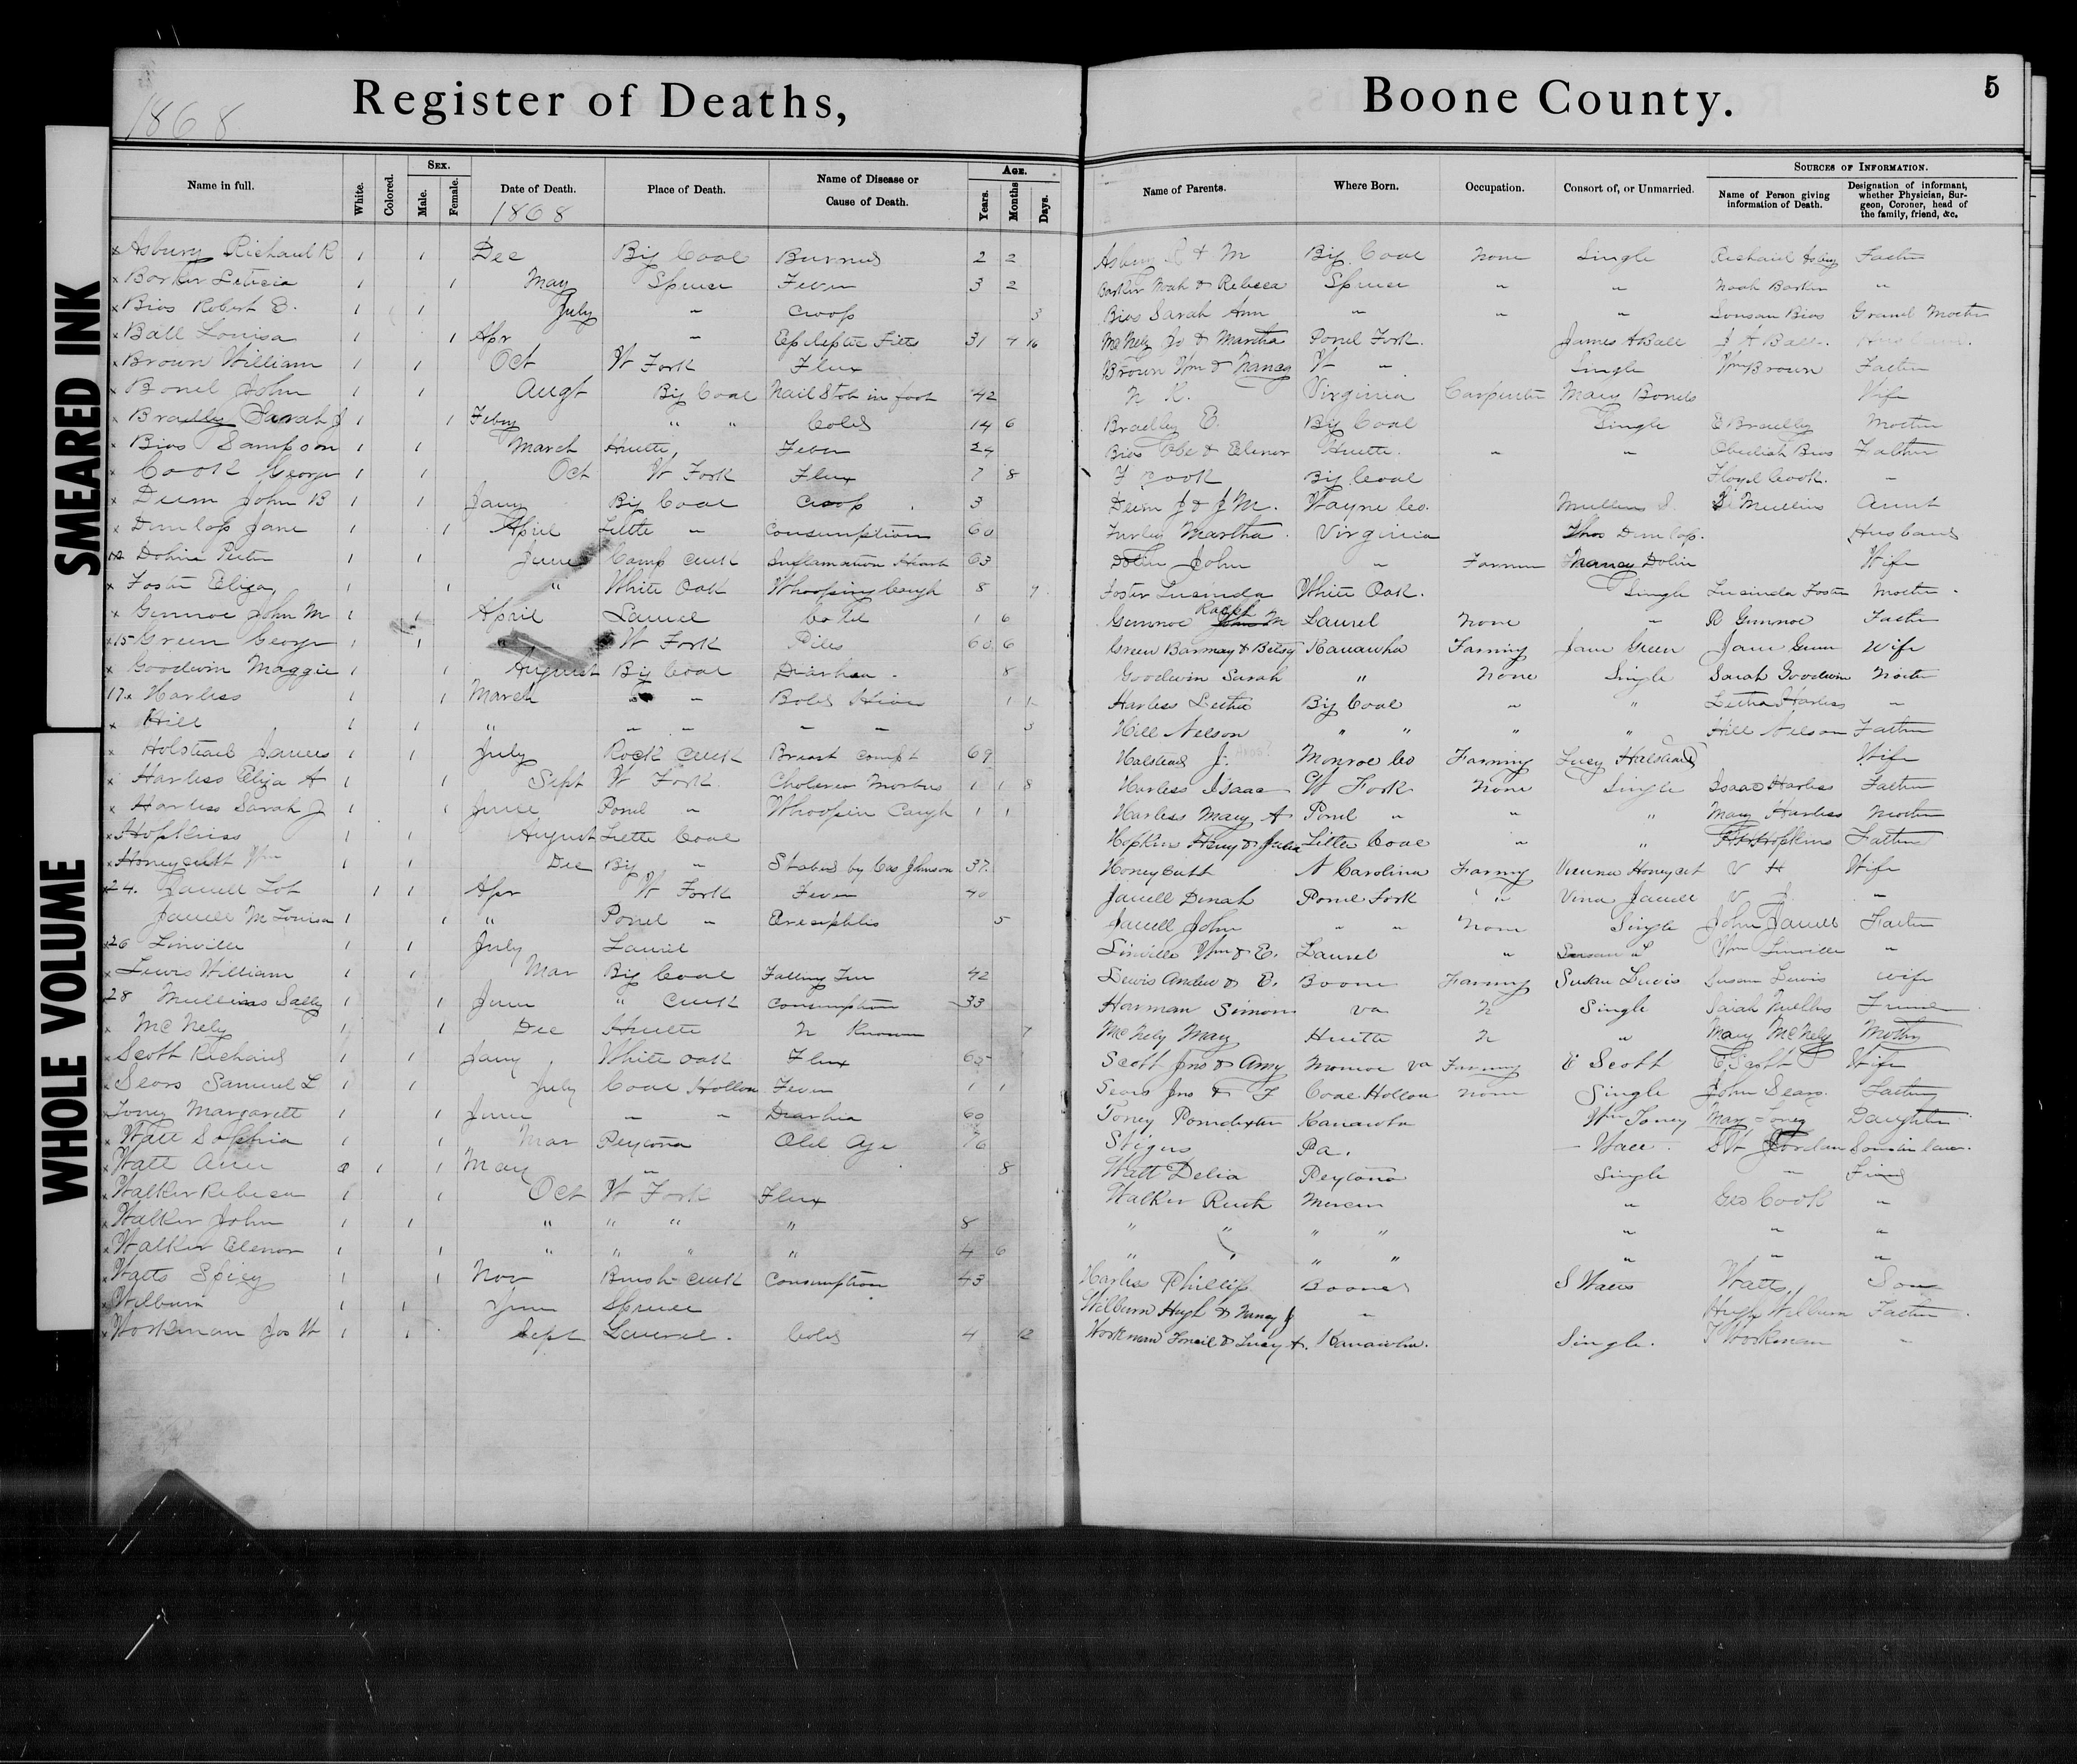 SMEARED INK
WHOLE VOLUME
1868
Register of Deaths, Boone County. 5
Name in full. White. Colored. Sex. Male. Female. Date of Death. 1868 Place of Death. Name of Disease or Cause of Death. Age. Years. Months Days. Name of Parents. Where Born. Occupation. Consort of, or Unmarried. Sources of Information. Name of Person giving information of Death. Designation of informant, whether Physician, Surgeon, Coroner, head of the family, friend, &c.
x Asbury Richard R 1 1 Dec Big Coal Burned 2 2 Asbury R & M Big Coal None Single Richard Asbury Father
x Barker Leticia 1 1 May Spruce Fever 3 2 Barker Noah & Rebecca Spruce " " Noah Barker "
x Bias Robert D. 1 1 July " Croop 3 Bias Sarah Ann " " " Bias Grand Mother
x Ball Louisa 1 1 Apr " Epileptic Fitts 31 7 16 McNely Jo & Martha Pond Fork. James A Ball J A Ball.
x Brown William 1 1 Oct W Fork Flux Brown Wm & Nancy W " Single Wm Brown Father
x Bonel John 1 1 Augt Big Coal Nail Stob in foot 42 N K. Virginia Carpenter Mary Bonels Wife
x Bradley Sarah J 1 1 Feby " " Cold 14 6 Bradley E. Big Coal Single E Bradley Mother
x Bias Sampson 1 1 March Huette, Fever 24 Bias Obe & Elenor Huette. " " Obediah Bias Father
x Cook George 1 1 Oct W Fork Flux 7 8 F Cook Big Coal Floyd Cook. "
x Deem John B 1 1 Jany Big Coal Croop 3 Deem J & J M. Wayne Co. Mullins S. S Mullins Aunt
x Dunlop Jane 1 1 April Little " Consumption 60 Martha Virginia Thos Dunlop. Husband
12 Dolin Peter 1 1 June Camp Creek Inflamation Heart 63 Dolin John " Farmer Nancy Dolin Wife
x Foster Eliza 1 1 " White Oak Whooping Cough 8 9 Foster Lucinda White Oak. Single Lucinda Foster Mother
x Gunnoe John M 1 1 April Laurel 1 6 Gunnoe Ralph M Laurel None " R Gunnoe Father
x 15 Green George 1 1 " W Fork Piles 60 6 Green Barmay & Betsy Kanawha Farming Jane Green Jane Green Wife
x Goodwin Maggie 1 1 August Big Coal Diarhea. 8 Goodwin Sarah " None Single Sarah Goodwin Mother
17 x Harless 1 1 March " " Bold Hives 1 1 Harless Letha Big Coal " " Letha Harless "
x Hill 1 1 " " " " " 3 Hill Nelson " " " " Hill Nelson Father
x Holstead James 1 1 July Rock Creek Breast Compt 69 Halstead J. Monroe Co Farming Lucy Halstead Wife
x Harless Eliza A 1 1 Sept W Fork. Cholera Morbus 1 1 8 Harless Isaac W Fork None Single Isaac Harless Father
x Harless Sarah J 1 1 June Pond " Whoopin Caugh 1 1 Harless Mary A Pond " " " Mary Harless Mother
x Hopkins 1 1 August Little Coal Hopkins Henry & Julia Little Coal " " Hopkins Father
x Honeycutt Wm 1 1 Dec Big " Stabed by Cas Johnson 37. Honeycutt N Carolina Farming Vienna Honeycut V H Wife
x 24. Jarrell Lot 1 1 Apr W Fork Fever 40 Jarrell Dinah Pond Fork " Vina Jarrell V J "
Jarrell M Louisa 1 1 " Pond " Eresiphlis 5 Jarrell John " " None Single John Jarrell Father
x 26 Linville 1 1 July Laurel Linville Wm & E. Laurel " Wm Linville "
x Lewis William 1 1 Mar Big Coal Falling Tree 42 Lewis Andew & E. Boone Farming Susan Lewis Susan Lewis Wife
28 Mullins Sally 1 1 June " Creek Consumption 33 Harman Simon Va N Single Sarah Mullins Friend
x McNely 1 1 Dec Huette N Known 7 McNely Mary Huette N " Mary McNely Mother
x Scott Richard 1 1 Jany White Oak Flux 65 Scott Jno & Amy Monroe Va Farming E Scott E Scott Wife
x Sears Samuel L 1 1 July Coal Hollow Fever 1 1 Sears Jno & F Coal Hollow None Single John Sears. Father
Toney Margarett 1 1 June " " Diarhia 60 Toney Poindexter Kanawha Wm Toney May Toney Daughter
x Watt Sophia 1 1 Mar Peytona Old Age 76 Pa. S W Jordan Son in law.
x Watt Ann 1 1 May " 8 Watt Delia Peytona Single " Friend
x Walker Rebecca 1 1 Oct W Fork Flux Walker Ruth Mercer " Geo Cook "
x Walker John 1 1 " " " " 8 " " " " " " "
x Walker Elenor 1 1 " " " " 4 6 " " " " " " "
x Watts Spicy 1 1 Nov Brush Creek Consumption 43 Harless Phillip Boone S Watts Watts Son
x Wilburn 1 1 June Spruce Wilburn Hugh & Nancy J " Hugh Wilburn Father
x Workman Jos W 1 1 Sept Laurel. Cold 4 12 Workman & Lucy A. Kanawha. Single. Workman "